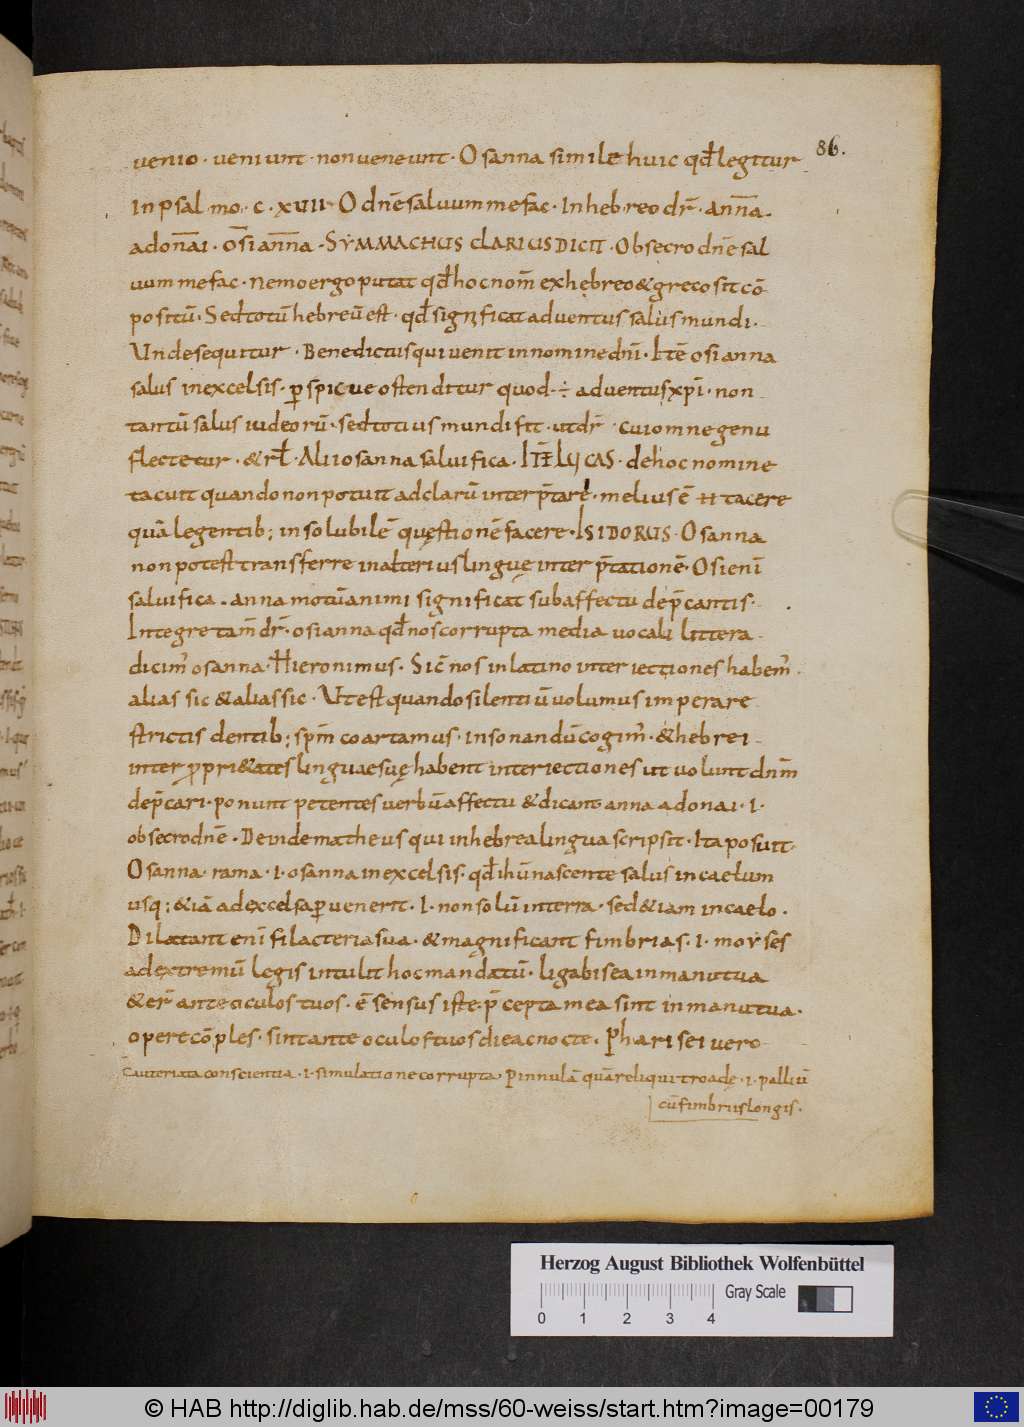 86.
uenio · ueniunt · non ueneunt · Osanna simile huic qđ legitur
In psalmo · c · xuii · O dn̄e saluum me fac · In hebreo dr̄ · ann̄a.
adon̄ai · os̄i ann̄a · SYMMACHUS CLARIUS DICIT · Obsecro dn̄e sal
uum me fac · Nemo ergo putat qđ hoc nom̄ ex hebreo & greco sit cō
positū · Sed totū hebreū est · qđ significat aduentus salus mundi ·
Unde sequitur · Benedictus qui uenit in nomine dn̄i · Itē osi anna
salus in excelsis · ꝑspicue ostenditur quod ÷ aduentus xp̄i · non
tantū salus iudeorū · sed totius mundi sit · ut dr̄ · cui omne genu
flectetur · & rł · Alii osanna saluifica · ITĒ LUCAS · de hoc nomine
tacuit quando non potuit ad clarū interp̄tare · melius ē H tacere
quā legentib; in solubilē quęstionē facere · ISIDORUS · Osanna
non potest transferre in alterius linguę interp̄tationē · Osi enī
saluifica . anna motū animi significat sub affectu dep̄cantis ·
Integre tam̄ dr̄ · osianna qđ nos corrupta media uocali littera
dicim̄ osanna · Hieronimus · Sic̄ nos in latino interiectiones habem̄ ·
alias sic & alias sic · Ut est quando silentiū uolumus imperare
strictis dentib; sp̄m coartamus · in sonandū cogim̄ · & hebrei
inter ꝓpri&ates linguae suę habent interiectiones ut uolunt dn̄m
dep̄cari · ponunt petentes uerbū affectu & dicant anna adonai · I ·
obsecro dn̄e · Deinde matheus qui in hebrea lingua scripsit · Ita posuit ·
Osanna · rama · I · osanna in excelsis · qđ ihū nascente salus in caelum
usq; & iā ad excelsa ꝑuenerit · I · non solū in terra · sed & iam in caelo .
Dilatant enī filacteria sua · & magnificant fimbrias · I · moyses
ad extremū legis intulit hoc mandatū · ligabis ea in manu tua
& er̄ ante oculos tuos · ē sensus iste p̄cepta mea sint in manu tua ·
opere cōples · sint ante oculos tuos die ac nocte . Pharisei uero
Cauteriata conscientia · I · simulatione corrupta · Pinnulā quā reliqui troadę · I · palliū
cū fimbriis longis ·
Herzog August Bibliothek Wolfenbüttel
Gray Scale
0 1 2 3 4
© HAB http://diglib.hab.de/mss/60-weiss/start.htm?image=00179